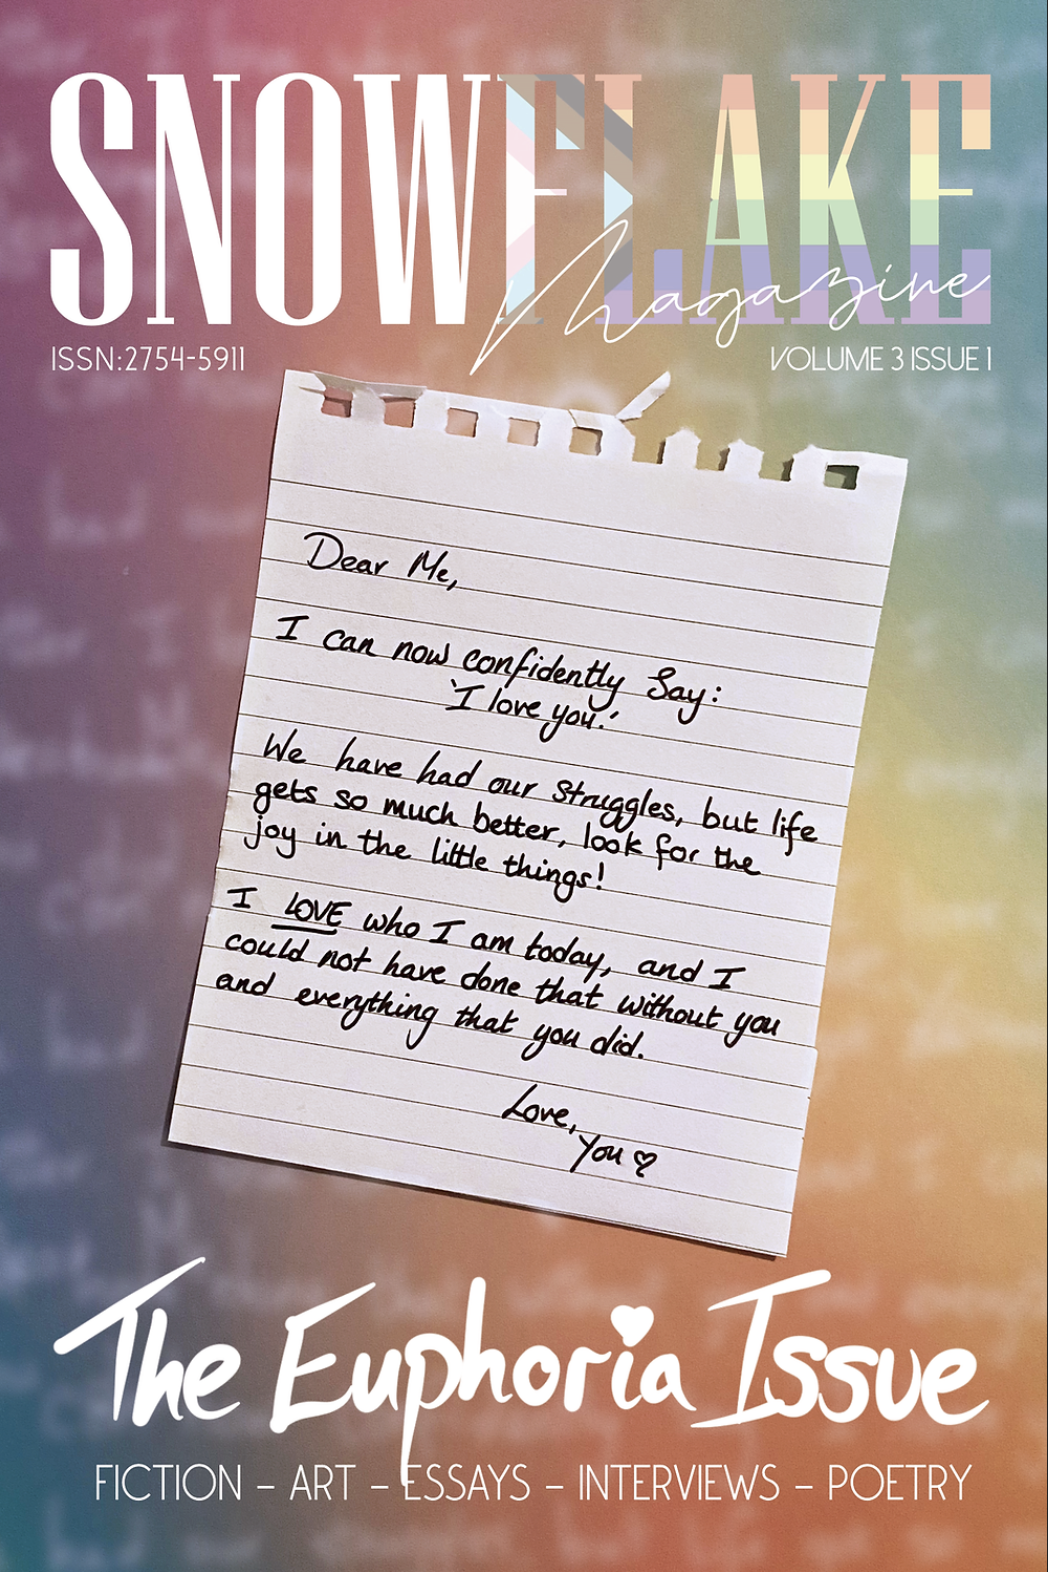 SNOWFLAKE
Magazine
ISSN:2754-5911
VOLUME 3 ISSUE 1
Dear Me,
I can now confidently Say:
'I love you.'
We have had our Struggles, but life
gets so much better, look for the
joy in the little things!
I LOVE who I am today, and I
could not have done that without you
and everything that you did.
Love,
You ♡
The Euphoria Issue
FICTION – ART – ESSAYS – INTERVIEWS – POETRY